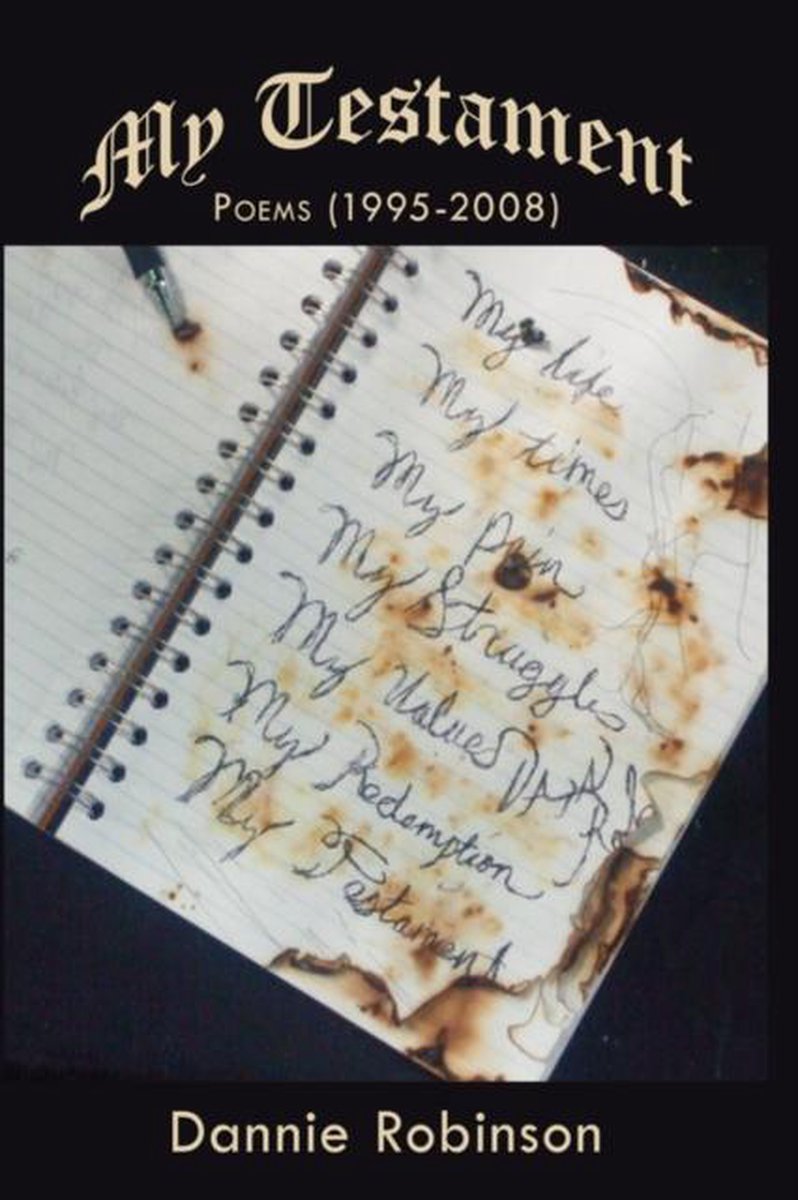 My Testament
POEMS (1995-2008)
My life
My times
My Pain
My Struggles
My Values
My Redemption
My Testament
Dannie Robinson